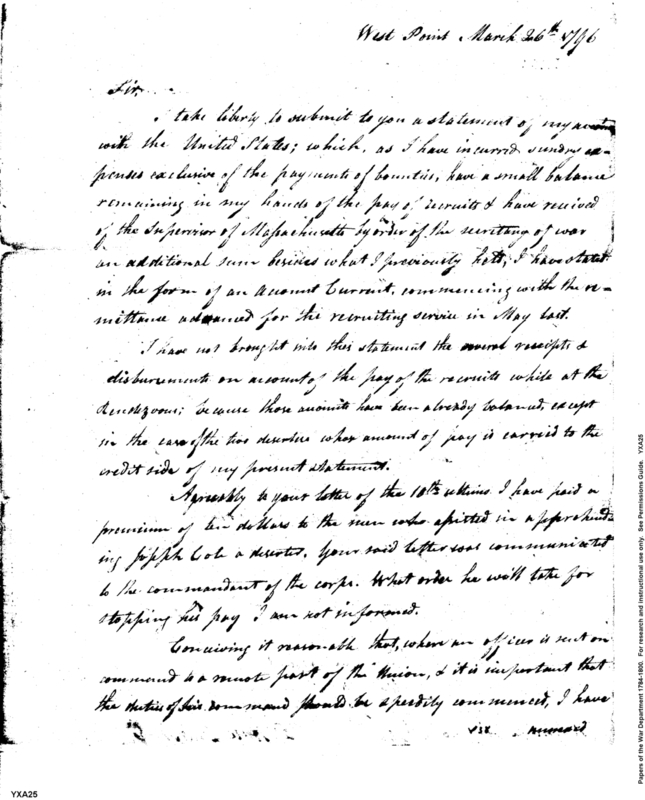 West Point March 26th 1796
Sir,
I take liberty to submit to you a statement of my
with the United States; which, as I have incurred sundry ex-
penses exclusive of the payments of bounties, have a small balance
remaining in my hands of the pay of recruits & have recived
of the Supervisor of Massachusetts by order of the secretary of war
an additional sum besides what I previously had; I have stated
in the form of an Account Current, commencing with the re-
mittance advanced for the recruiting service in May last.
I have not brought into this statement the receipts &
disbursements on account of the pay of the recruits while at the
Rendezvous; because those accounts have been already balanced, except
in the case of the two deserters whose amount of pay is carried to the
credit side of my present statement.
Agreeably to your letter of the 10th ultimo I have paid a
premium of ten dollars to the men who assisted in apprehend-
ing Joseph Cole a deserter. Your said letter was communicated
to the commandant of the corps. What order he will take for
stopping his pay I am not informed.
Conceiving it reasonable that, where an officer is sent on
command to a remote part of the Union, & it is important that
the duties of his command should be speedily commenced, I have
YXA25
Papers of the War Department 1784-1800. For research and instructional use only. See Permissions Guide. YXA25